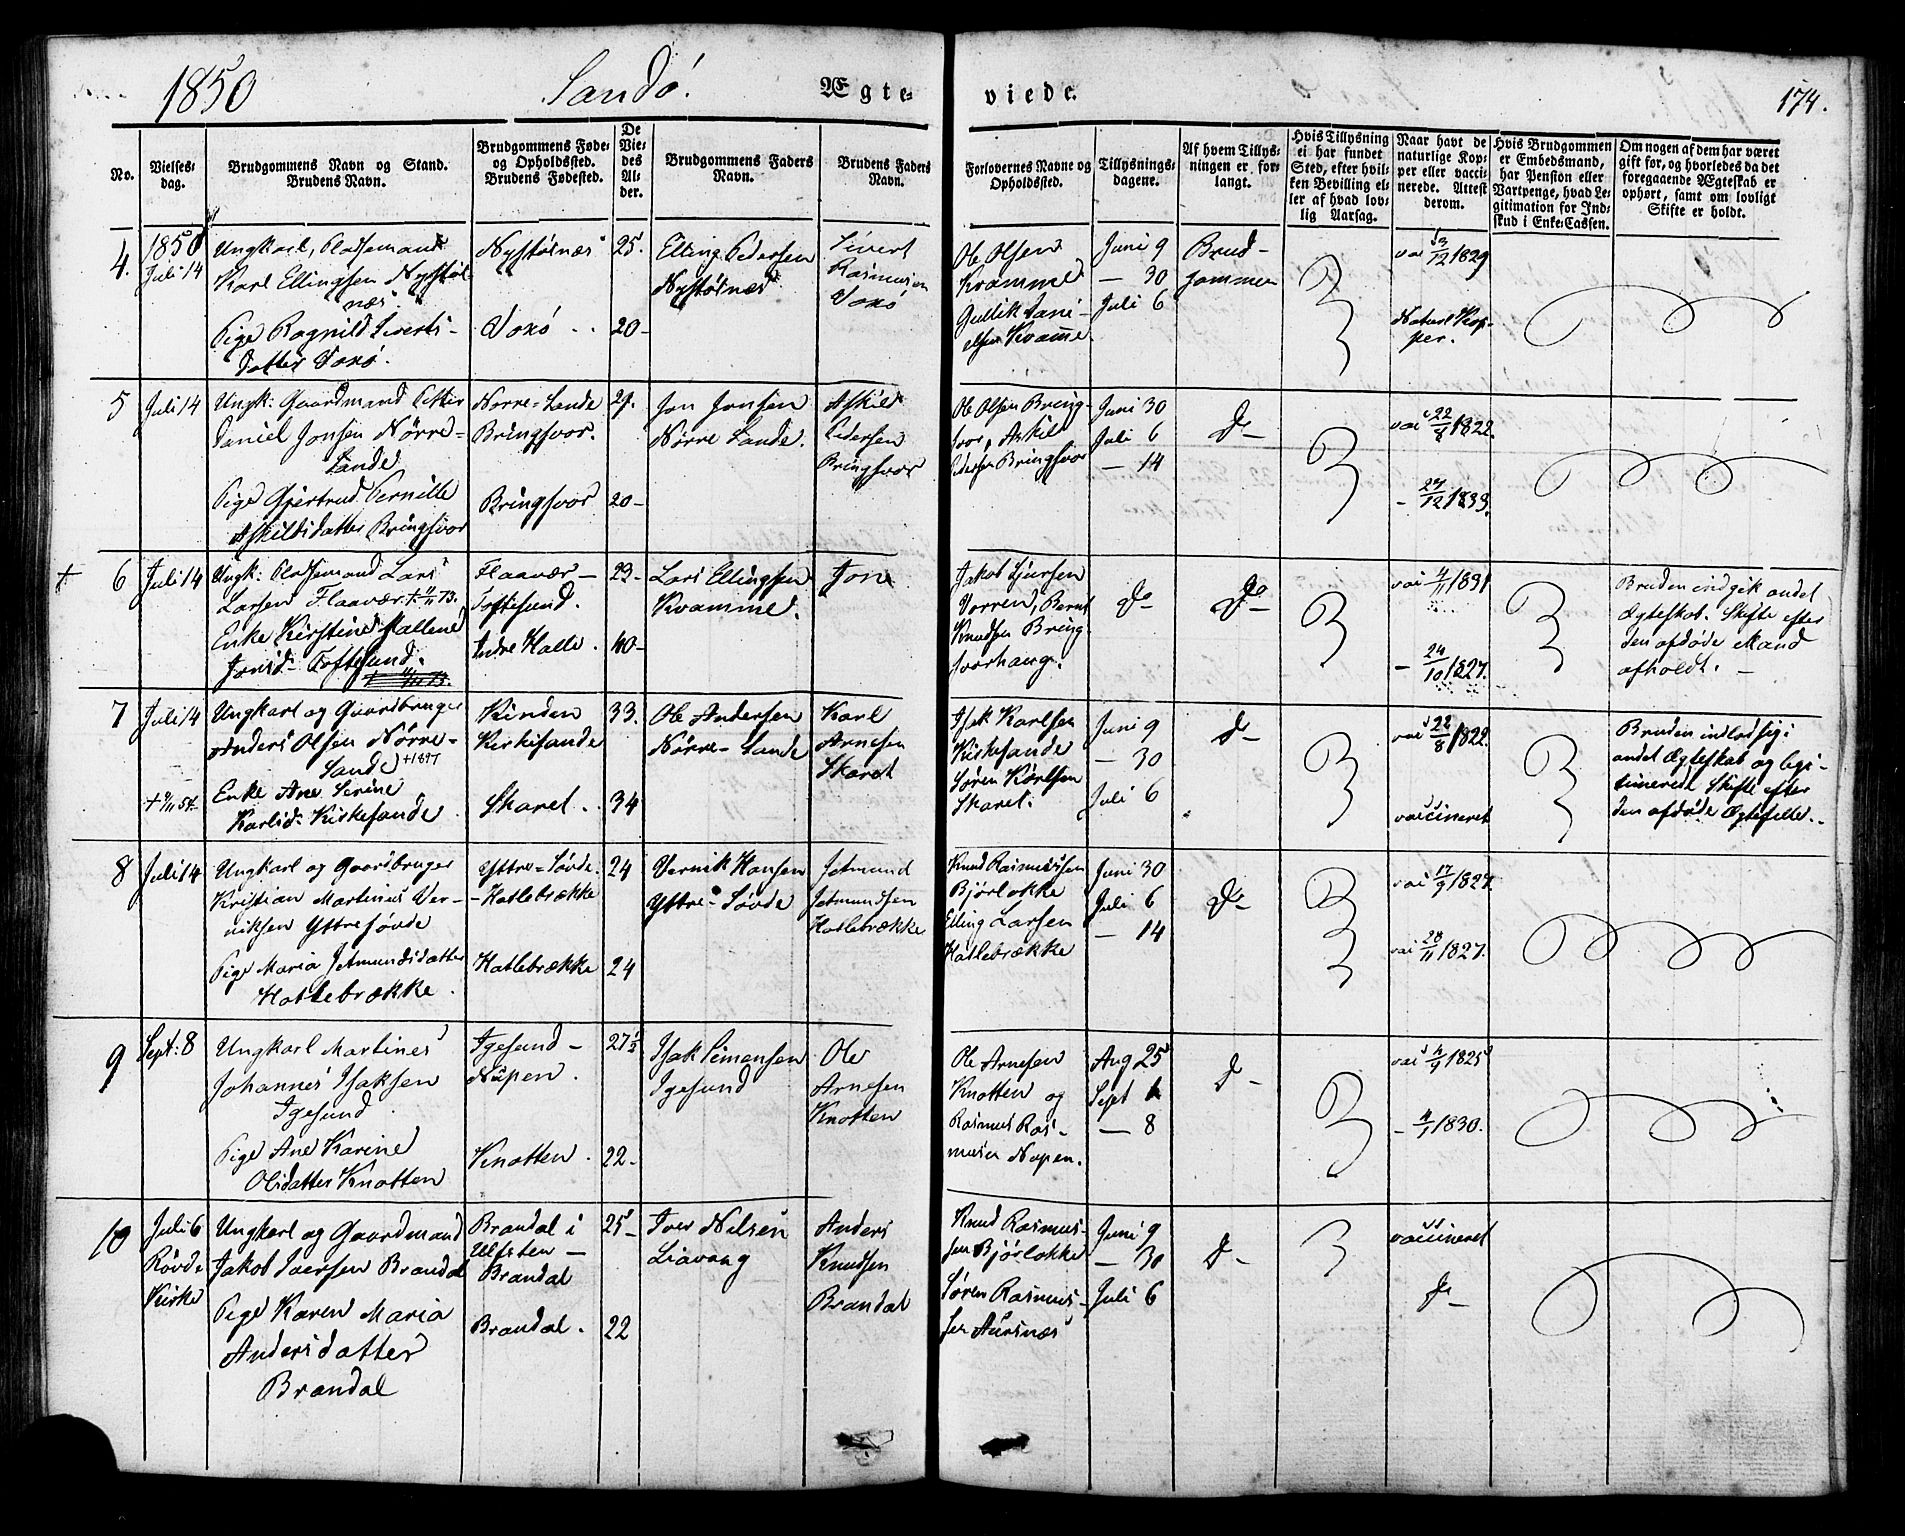 1850
Sandö.
Ægte-
viede.
174.
No.
Vielses-
dag.
Brudgommens Navn og Stand.
Brudens Navn.
Brudgommens Føde-
og Opholdssted.
Brudens Fødested.
De
Vie-
des
Al-
der.
Brudgommens Faders
Navn.
Brudens Faders
Navn.
Forlovernes Navne og
Opholdssted.
Tillysnings-
dagene.
Af hvem Tillys-
ningen er for-
langt.
Hvis Tillysning
ei har fundet
Sted, efter hvil-
ken Bevilling el-
ler af hvad lov-
lig Aarsag.
Naar havt de
naturlige Kop-
per eller vacci-
nerede. Attest
derom.
Hvis Brudgommen
er Embedsmand,
har Pension eller
Vartpenge, hvad Le-
gitimation for Ind-
skud i Enke-Cassen.
Om nogen af dem har været
gift før, og hvorledes da det
foregaaende Ægteskab er
ophørt, samt om lovligt
Skifte er holdt.
4.
1850
Juli 14
Ungkarl, Pladsemand
Karl Ellingsen Nystöl
næs
Pige Ragnild Siverts-
datter Voxö.
Nystölnæs
Voxö
25.
20-
Elling Pedersen
Nystölnæs
Sivert
Rasmusen
Voxö
Ole Olsen
Kvamme
Gullik Dani-
elsen Kvamme
Juni 9
— 30
Juli 6
Brud-
gommen
vac 1829
Naturl Kop-
per.
5
Juli 14
Ungk: Gaardmand Petter
Daniel Jonsen Nörre-
Sande
Pige Gjertrud Pernille
Askildsdatter Bringsvor
Norre-Sande
Bringsvor.
Bringsvor
29.
20-
Jon Jonsen
Nörre Sande.
Askild
Pedersen
Bringsvor
Ole Olsen Bring-
svor, Askild
Pedersen Bringsvor
Juni 30
Juli 6
— 14
Do
vac 22/8 1822.
- 27/12 1833.
+ 6
Juli 14
Ungk: Pladsemand Lars
Larsen Flaavær + 4/11 73.
Enke Kirstine Mallene
Jonsd- Toftesund.
Flaavær-
Toftesund.
Indre Halle.
23-
40-
Lars Ellingsen
Kvamme.
Jon
Jakob Sjursen
Vorren, Bernt
Knudsen Bring-
svorhaug.
Do
Do
vac 4/11 1831
- 24/10 1827.
Bruden indgik andet
Ægteskab. Skifte efter
den afdøde Mand
afholdt. —
7
Juli 14
Ungkarl og Gaardbruger
Anders Olsen Nörre-
Sande + 1897
+ 9/11 54
Enke Ane Serine
Karlsd: Kirkesande
Rinden
Kirkesande
Skaret.
33.
34
Ole Andersen
Nörre-Sande
Karl
Arnesen
Skaret
Isak Karlsen
Kirkesande
Sören Karlsen
Skaret.
Juni 9
— 30
Juli 6
Do
vac 22/8 1822.
vaccineret
Bruden indlod sig i
andet Ægteskab og legi-
timerede Skifte efter
den afdøde Ægtefelle.-
8
Juli 14
Ungkarl og Gaardbruger
Kristian Martinus Ver-
niksen Yttresövde
Pige Maria Jetmundsdatter
Hatlebrække.
Yttre-Sövde.
-Hatlebrække
Hatlebrække
24
24
Vernik Hansen
Yttre-Sövde
Jetmund
Jetmundsen
Hatlebrække
Knud Rasmussen
Bjørlokke
Elling Larsen
Hatlebrække
Juni 30
Juli 6
— 14
Do
vac 17/9 1827.
vac 28/11 1827.
9
Sept: 8
Ungkarl Martines
Johannes Isaksen
Igesund
Pige Ane Karine
Olsdatter Knotten
Igesund-
Nupen.
Knotten.
27½
22-
Isak Simensen
Igesund
Ole
Arnesen
Knotten
Ole Arnesen
Knotten og
Rasmus Ras-
musen Nupen.
Aug 25
Sept 1
— 8
Do
vac 4/9 1825
- 4/1 1830.
10
Juli 6
Røvde
Kirke
Ungkarl og Gaardmand
Jakob Iversen Brandal
Pige Karen Maria
Andersdatter
Brandal
Brandal i
Ulfsten-
Brandal
Brandal.
25-
22
Iver Nilsen
Liavaag
Anders
Knudsen
Brandal
Knud Rasmus-
sen Bjørlokke
Sören Rasmus-
sen Aursnæs
Juni 9
— 30
Juli 6
Do
vaccineret
Do